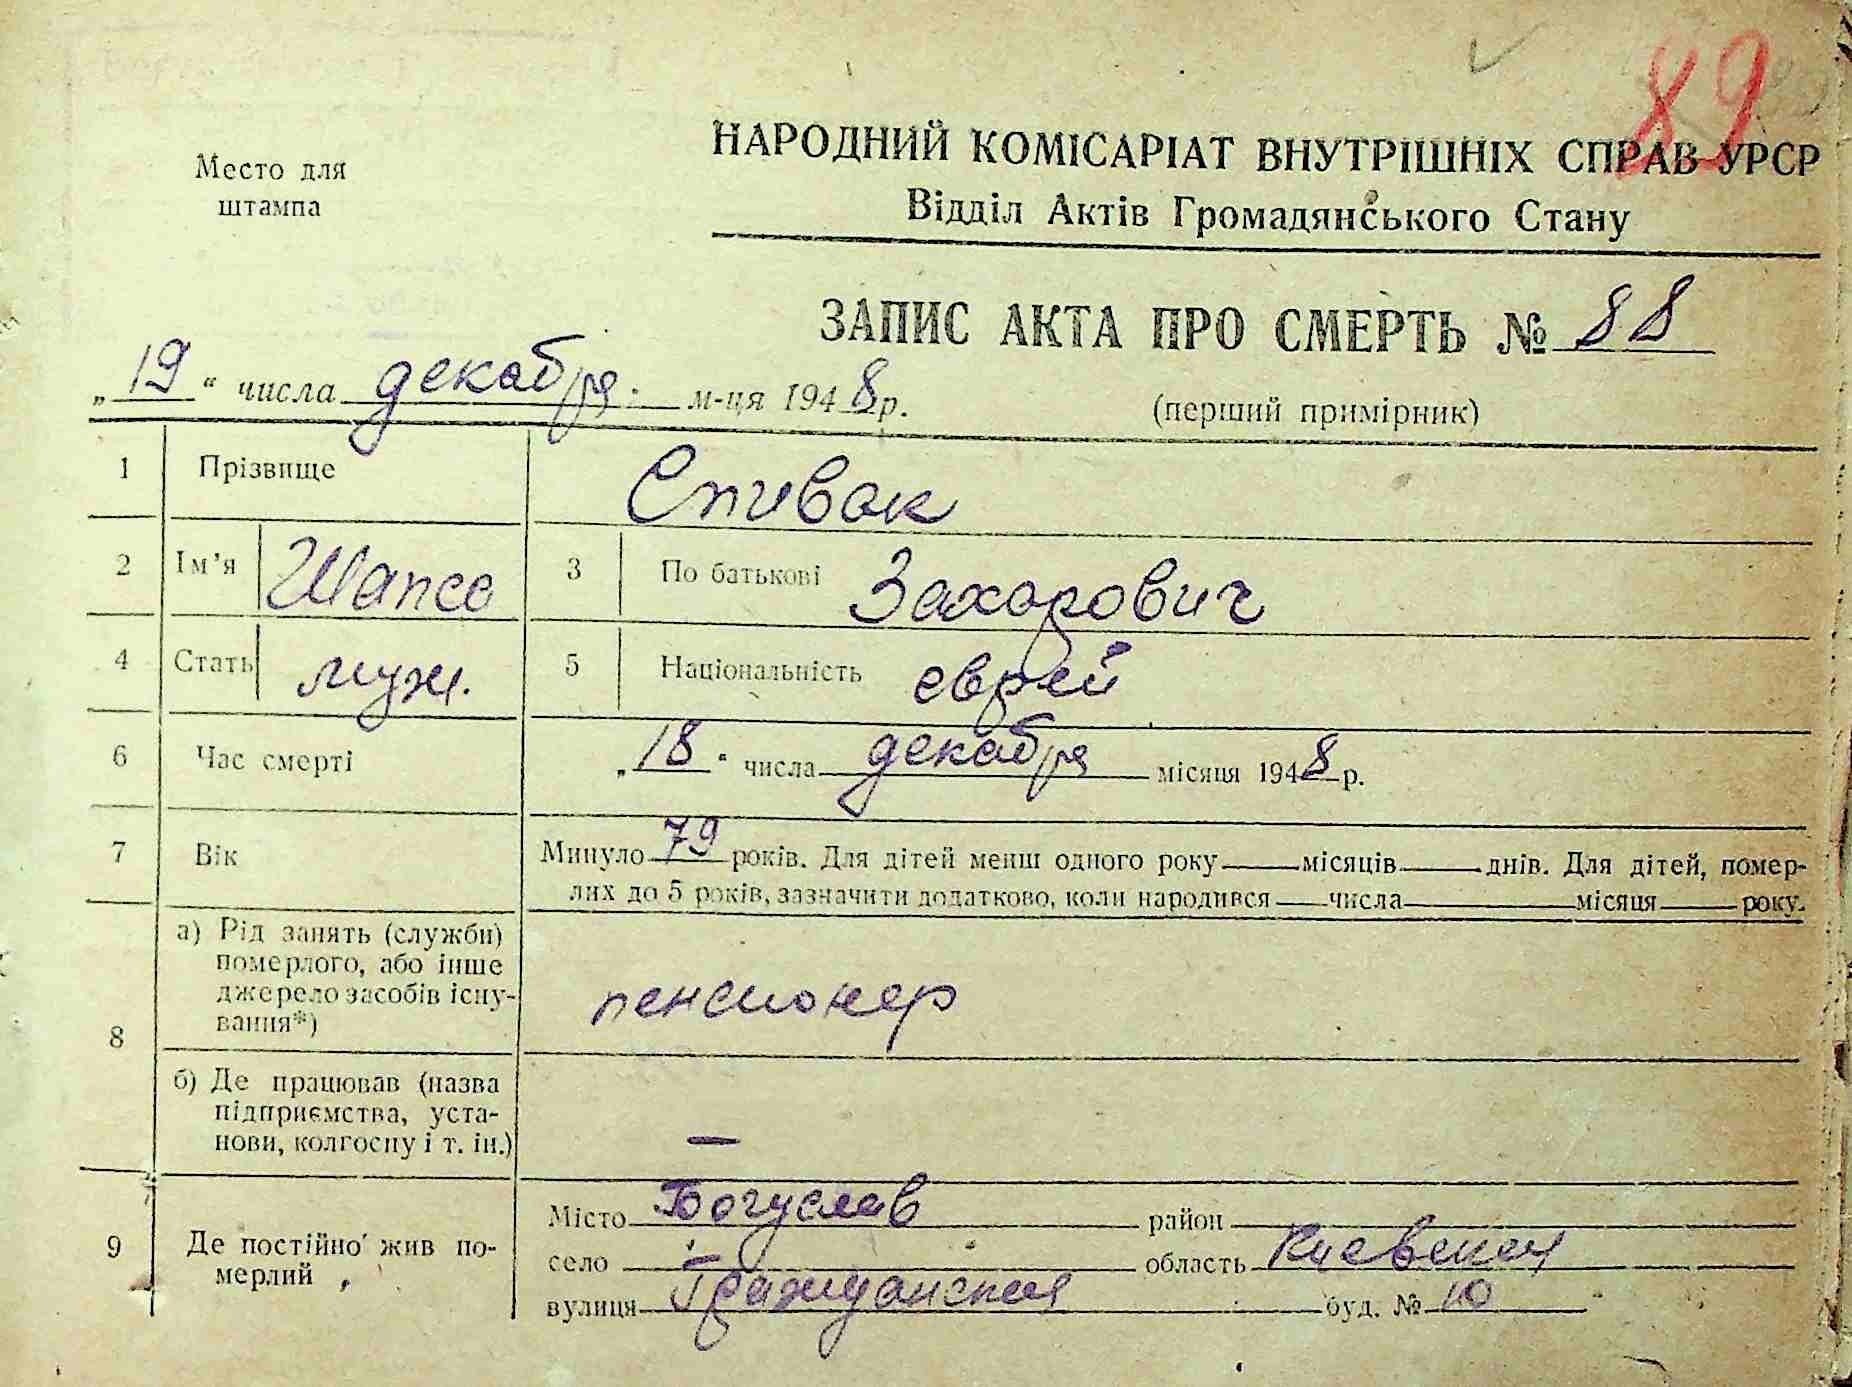 89
Место для
штампа
НАРОДНИЙ КОМІСАРІАТ ВНУТРІШНІХ СПРАВ УРСР
Відділ Актів Громадянського Стану
ЗАПИС АКТА ПРО СМЕРТЬ № 88
„19“ числа декабря м-ця 1948 р.
(перший примірник)
1 Прізвище Спивак
2 Ім’я Шапсе 3 По батькові Захарович
4 Стать муж. 5 Національність еврей
6 Час смерті „18“ числа декабря місяця 1948 р.
7 Вік Минуло 79 років. Для дітей менш одного року — місяців — днів. Для дітей, помер-
лих до 5 років, зазначити додатково, коли народився — числа — місяця — року.
8 а) Рід занять (служби)
померлого, або інше
джерело засобів існу-
вання*) пенсионер
б) Де працював (назва
підприємства, уста-
нови, колгоспу і т. ін.) —
9 Де постійно жив по-
мерлий
Місто Богуслав район
село — область Киевская
вулиця Гражданская буд. № 10